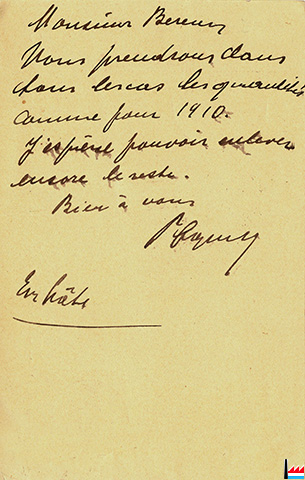 Monsieur
Nous prendrons dans
tous les cas les quantités
comme pour 1910.
J'espère pouvoir enlever
encore le reste.
Bien à vous
En hâte